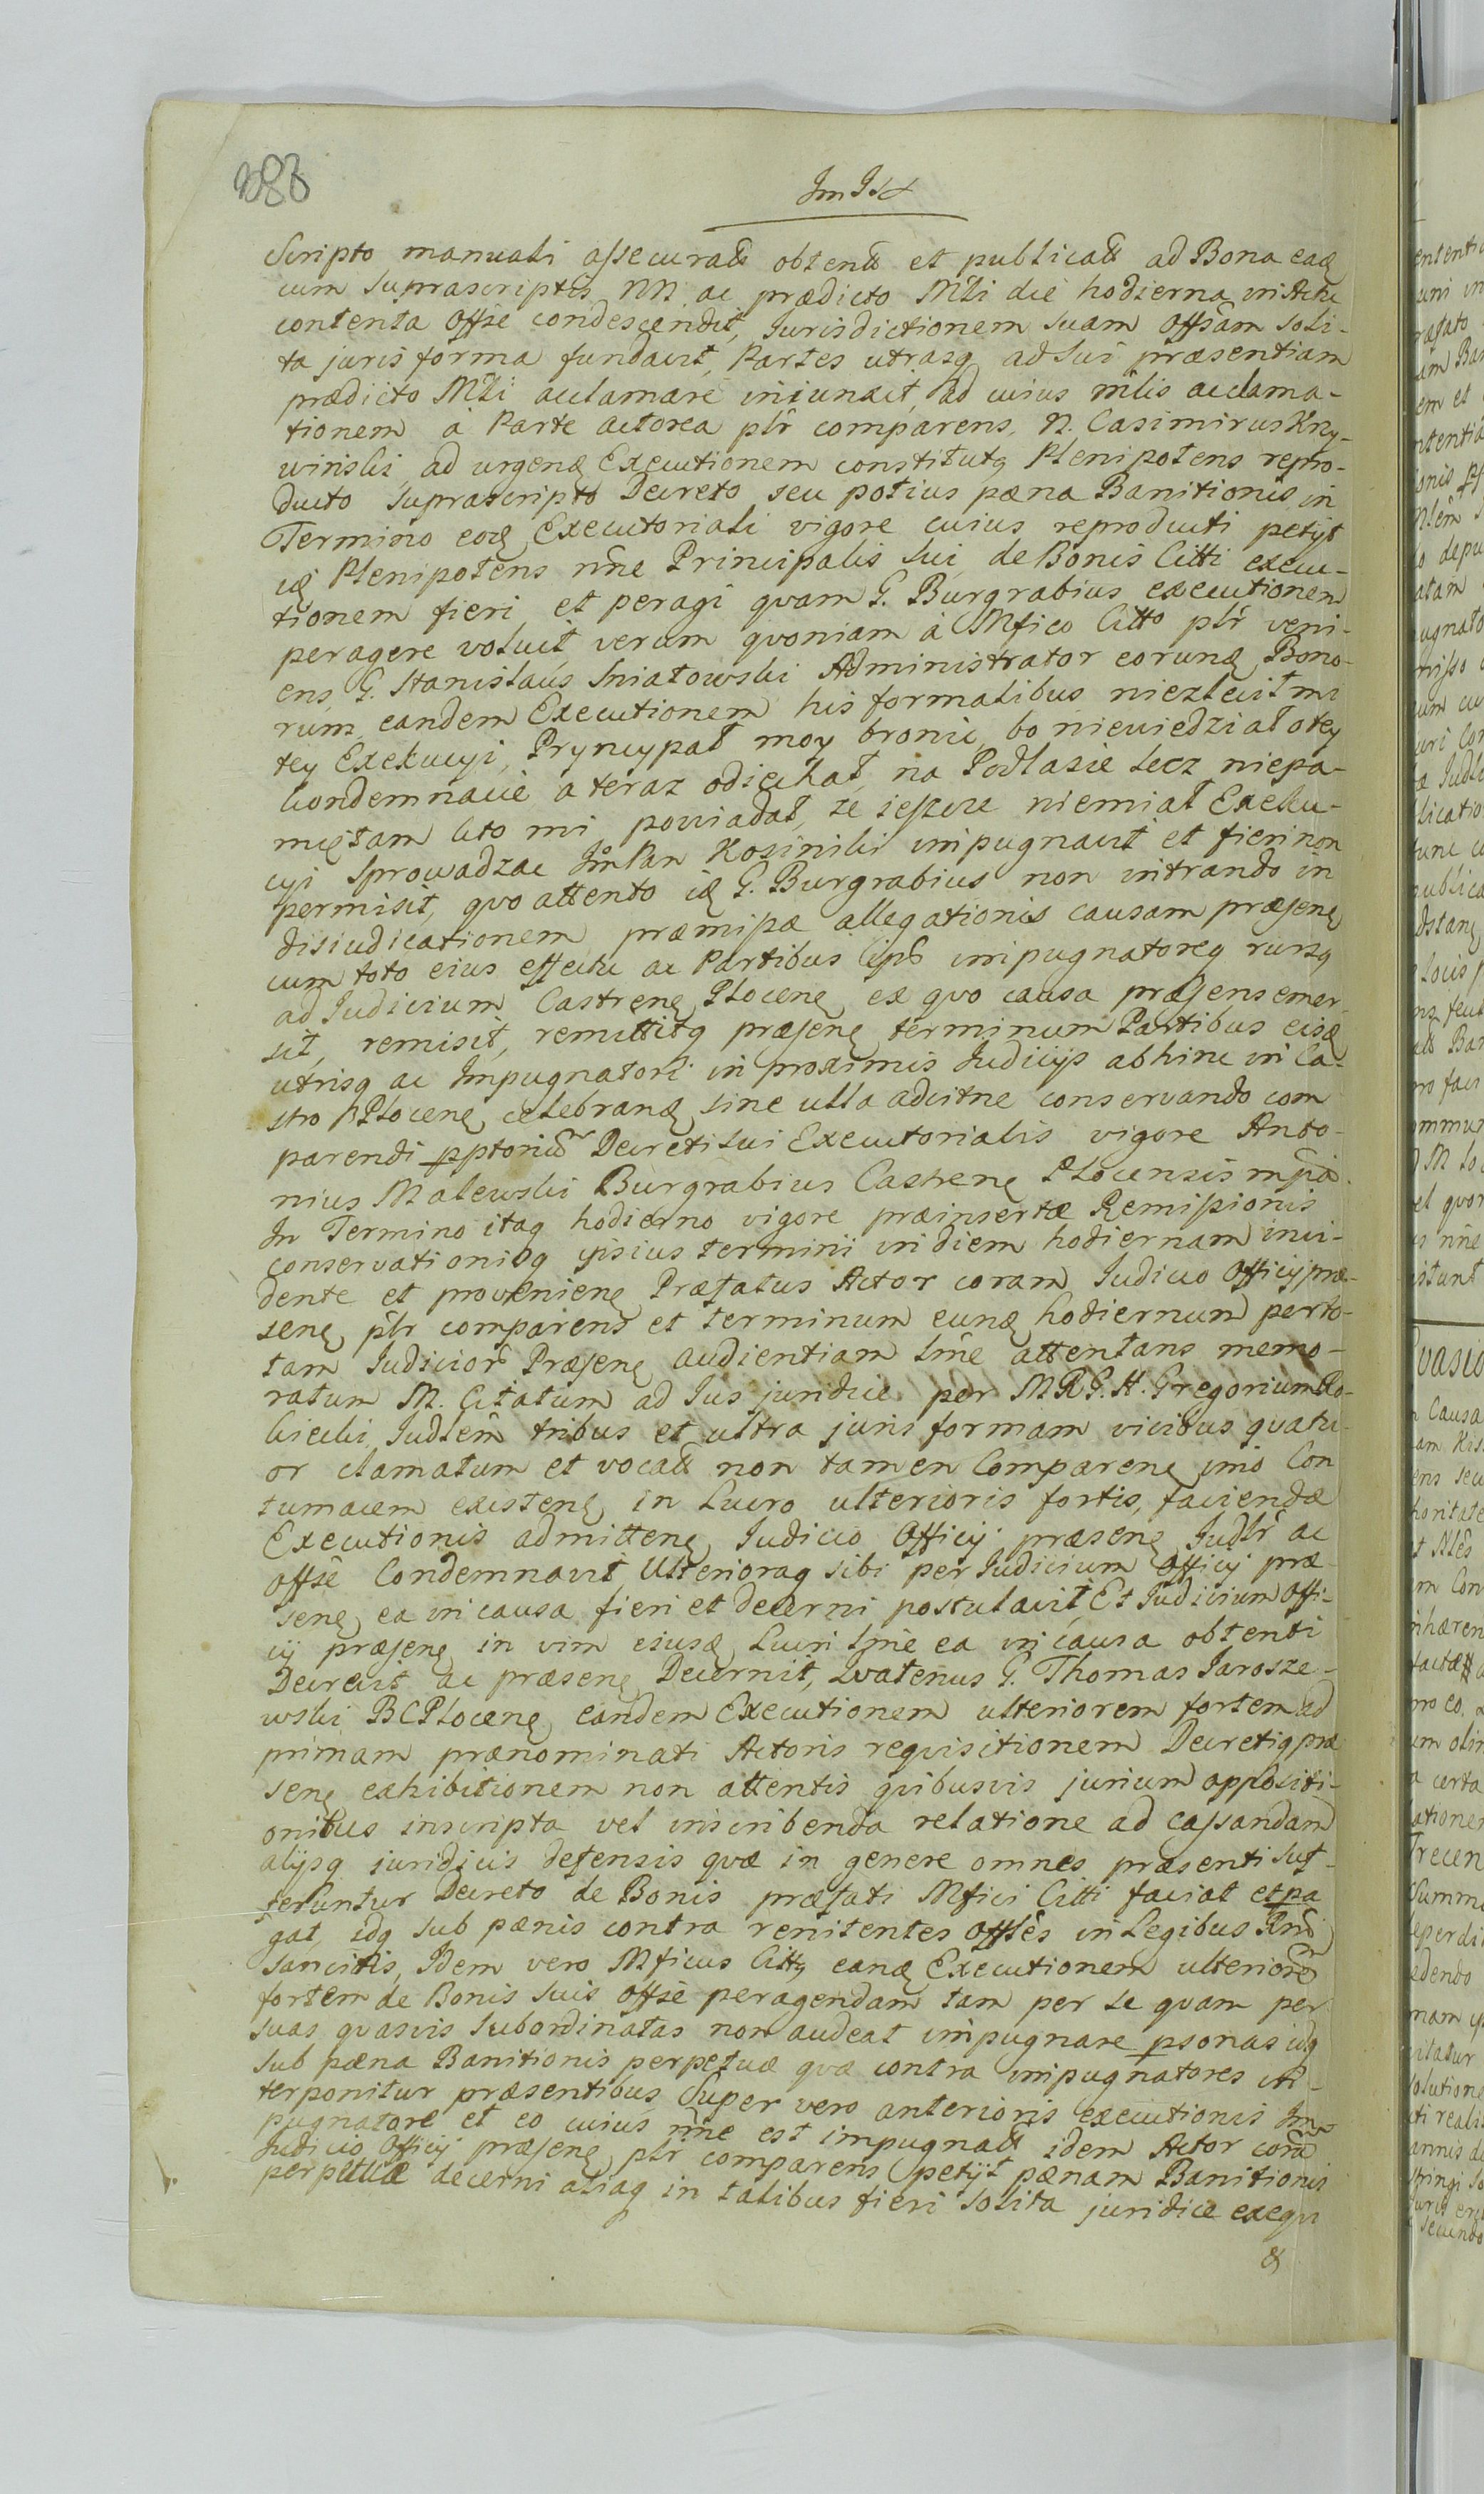 288
Scripto manuali assecurat obtent et publicat ad Bona ead
cum suprascriptis NN ac prædicto Mtli die hodierna in Actu
contenta Offse condescendit, Jurisdictionem suam Offsam soli-
ta juris forma fundavit, Partes utrasq ad sui præsentiam
prædicto Mtli acclamare iniunxit, ad cuius mlis acclama-
tionem à Parte actorea plr comparens, N. Casimirus Kry-
winski, ad urgend Executionem constitutq Plenipotens repro-
ducto suprascripto Decreto seu potius pæna Banitionis in
Termino eod Executoriali vigore cuius reproducti petijt
id Plenipotens nne Principalis sui de Bonis Citti execu-
tionem fieri et peragi quam G. Burgrabius executionem
peragere voluit verum quoniam à Mfico Citto plr veni-
ens, G. Stanislaus Sniatowski Administrator eorund Bono-
rum, eandem Executionem his formalibus niezlecił mi
tey Exekucyi, Pryncypał moy bronic, bo niewiedział o tey
kondemnacie, a teraz odiechał, na Podlasie lecz niepa-
miętam kto mi powiadał, ze ieszcze niemiał Exeku-
cyi Sprowadzac Jm Pan Kosinski impugnavit et fieri non
permisit, quo attento id G. Burgrabius non intrando in
disiudicationem præmissæ allegationis causam præsene
cum toto eius effectu ac Partibus ips impugnatoreq rursq
ad Judicium Castrene Plocene ex quo causa præsens emer-
sit, remisit, remittitq præsene terminum Partibus eisd
utrisq ac Impugnatori in proximis Judicijs abhinc in Ca-
stro Plocene celebrand sine ulla adcitne conservando com
parendi pptoriu Decreti sui Executorialis vigore Anto-
nius Malewski Burgrabius Castrene Plocensis mpia.
In Termino itaq hodierno vigore præinsertæ Remissionis
conservationisq ipsius termini in diem hodiernam inci-
dente et proveniene Præfatus Actor coram Judicio Officij præ-
sene, plr comparens et terminum eund hodiernum per to-
tam Judicior Præsene audientiam lme attentans memo-
ratum M. Citatum ad Jus juridice per M.R.G.H. Gregorium Ro-
kicki Judlem tribus et ultra juris formam vicibus quatu-
or clamatum et vocat non tamen Comparene imo Con
tumacem existene in Lucro ulterioris fortis, faciendæ
Executionis admittene Judicio Officij præsene Judlr ac
offse Condemnavit, Ulterioraq sibi per Judicium Officij præ-
sene ea in causa fieri et decerni postulavit, Et Judicium Offi-
cij præsene in vim eiusd Lucri lme ea in causa obtenti
Decrevit ac præsene Decernit, Quatenus G. Thomas Jarosze-
wski BCPlocene eandem Executionem ulteriorem fortem ad
primam prænominati Actoris requisitionem Decretiq præ
sene exhibitionem non attentis quibusvis jurium oppositi-
onibus inscripta vel inscribenda relatione ad cassandam
alijsq juridicis defensis quæ in genere omnes præsenti suf-
feruntur Decreto de Bonis præfati Mfici Citti faciat et pa
gat, idq sub pænis contra renitentes Offles in Legibus Rni
sancitis, Idem vero Mficus Cittq eand Executionem ulteriore
fortem de Bonis suis offse peragendam tam per se quam per
suas quasvis subordinatas non audeat impugnare psonas idq
sub pæna Banitionis perpetuæ quæ contra impugnatores in-
terponitur præsentibus Super vero anterioris executionis Im-
pugnatore et eo cuius nne est impugnat idem Actor cora
Judicio Officij præsene plr comparens petijt pænam Banitionis
perpetuæ decerni aliaq in talibus fieri solita juridice exequi
&